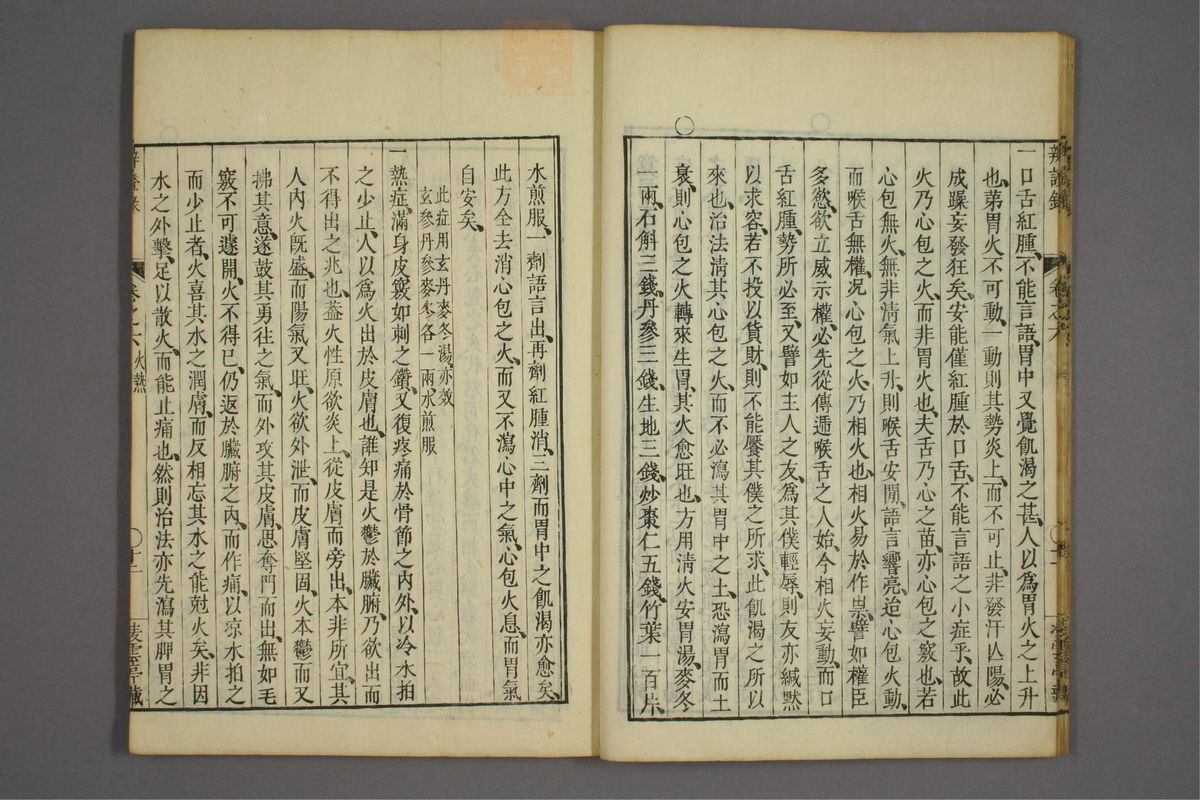 辨證錄
卷之六
一口舌紅腫、不能言語、胃中又覺飢渴之甚、人以爲胃火之上升
也、第胃火不可動、一動則其勢炎上、而不可止、非發汗亡陽、必
成躁妄發狂矣、安能僅紅腫於口舌、不能言語之小症乎、故此
火乃心包之火、而非胃火也、夫舌乃心之苗、亦心包之竅也、若
心包無火、無非清氣上升、則喉舌安閒、語言響亮、迨心包火動、
而喉舌無權、况心包之火、乃相火也、相火易於作祟、譬如權臣
多慾、欲立威示權、必先從傳遞喉舌之人始、今相火妄動、而口
舌紅腫、勢所必至、又譬如主人之友、爲其僕輕辱、則友亦緘默
以求容、若不投以貨財、則不能饜其僕之所求、此飢渴之所以
來也、治法清其心包之火、而不必瀉其胃中之土、恐瀉胃而土
衰、則心包之火轉來生胃、其火愈旺也、方用清火安胃湯、麥冬
一兩、石斛三錢、丹參三錢、生地三錢、炒棗仁五錢、竹葉一百片、
水煎服、一劑語言出、再劑紅腫消、三劑而胃中之飢渴亦愈矣、
此方全去消心包之火、而又不瀉心中之氣、心包火息、而胃氣
自安矣、
此症用玄丹麥冬湯、亦效
玄參丹參麥冬各一兩、水煎服
一熱症、滿身皮竅如刺之鑽、又復疼痛於骨節之内外、以冷水拍
之少止、人以爲火出於皮膚也、誰知是火鬱於臟腑、乃欲出而
不得出之兆也、蓋火性原欲炎上、從皮膚而旁出、本非所宜、其
人内火既盛、而陽氣又旺、火欲外泄、而皮膚堅固、火本鬱而又
拂其意、遂鼓其勇往之氣、而外攻其皮膚、思奪門而出、無如毛
竅不可遽開、火不得已、仍返於臟腑之内、而作痛、以凉水拍之
而少止者、火喜其水之潤膚、而反相忘其水之能尅火矣、非因
水之外擊、足以散火、而能止痛也、然則治法亦先瀉其脾胃之
卷之六 火熱
〇十二